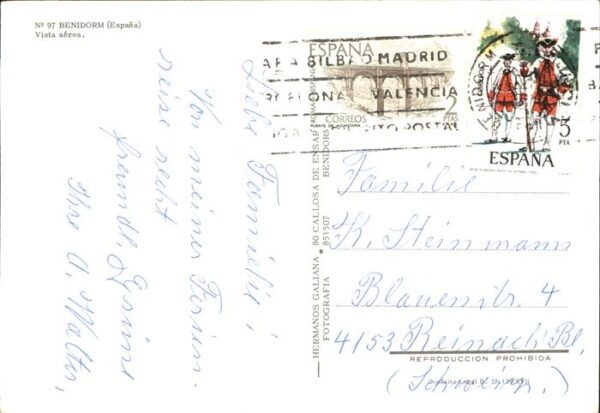 Nº 97 BENIDORM (España)
Vista aérea.
Liebe Familie,
Von meiner Ferien-
reise recht
freundl. Grüsse
Ihre A. Walter,
HERMANOS GALIANA. 80 CALLOSA DE ENSAR
FOTOGRAFIA 851507 BENIDORM
ESPAÑA
CORREOS
2
PTAS
BILBAO MADRID
VALENCIA
POSTAL
BENIDORM
5
PTA
ESPAÑA
Familie
K. Steinmann
Blauenstr. 4
4153 Reinach Bl,
REPRODUCCION PROHIBIDA
(Schweiz)